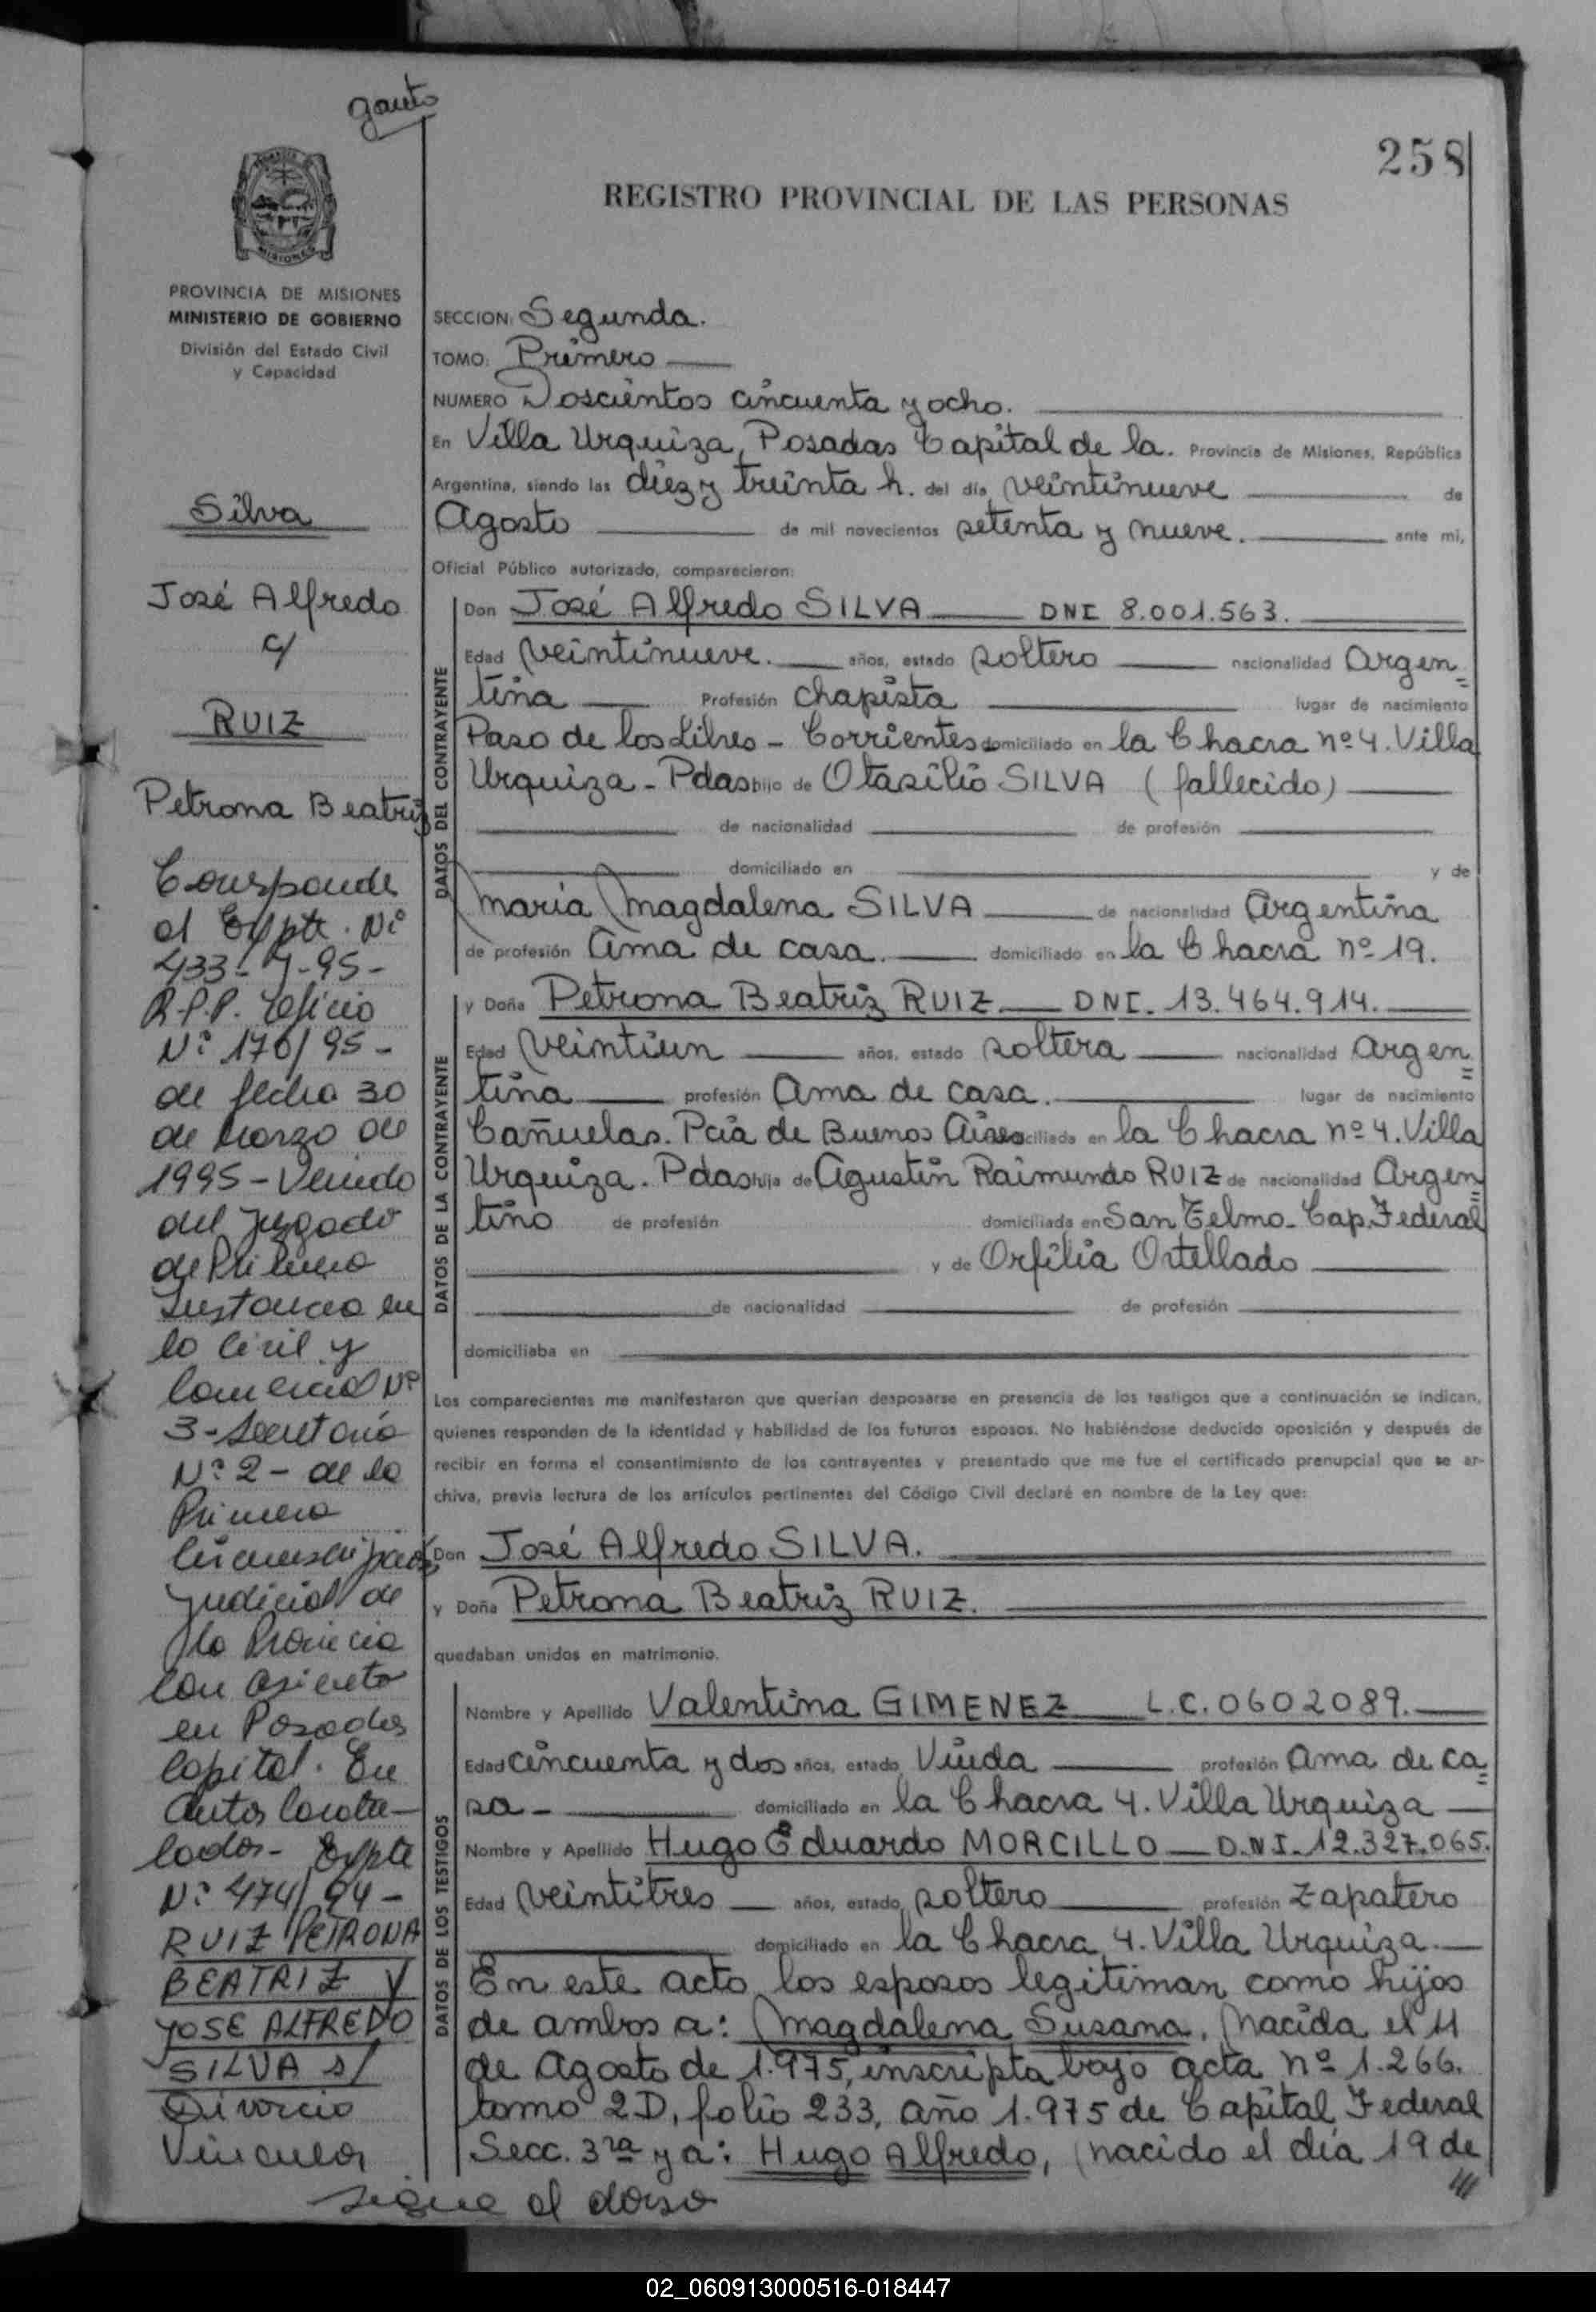 gauto
258
REGISTRO PROVINCIAL DE LAS PERSONAS
PROVINCIA DE MISIONES
MINISTERIO DE GOBIERNO
División del Estado Civil
y Capacidad
Silva
José Alfredo
c/
RUIZ
Petrona Beatriz
Corresponde
al Expte. Nº
433-J-95-
R.P.P. Oficio
Nº 176/95-
de fecha 30
de Marzo de
1995 - Venido
del Juzgado
de Primera
Instancia en
lo Civil y
Comercial Nº
3-Secretaría
Nº 2 - de la
Primera
Circunscripción
Judicial de
la Provincia
con asiento
en Posadas
Capital. En
Autos Caratu-
lados - Expte
Nº 474/94-
RUIZ PETRONA
BEATRIZ Y
JOSE ALFREDO
SILVA s/
Divorcio
Vincular
sigue al dorso
SECCION: Segunda.
TOMO: Primero
NUMERO Doscientos cincuenta y ocho.
En Villa Urquiza, Posadas Capital de la. Provincia de Misiones, República
Argentina, siendo las diez y treinta h. del día veintinueve de
Agosto de mil novecientos setenta y nueve. ante mi,
Oficial Público autorizado, comparecieron:
DATOS DEL CONTRAYENTE
Don José Alfredo SILVA DNI 8.001.563.
Edad Veintinueve. años, estado soltero nacionalidad Argen=
tina Profesión chapista lugar de nacimiento
Paso de los Libres - Corrientes domiciliado en la Chacra nº 4. Villa
Urquiza - Pdas hijo de Otasilio SILVA (fallecido)
de nacionalidad de profesión
domiciliado en y de
María Magdalena SILVA de nacionalidad Argentina
de profesión Ama de casa. domiciliado en la Chacra nº 19.
DATOS DE LA CONTRAYENTE
y Doña Petrona Beatriz RUIZ DNI. 13.464.914.
Edad Veintiun años, estado soltera nacionalidad Argen=
tina profesión Ama de casa. lugar de nacimiento
Cañuelas. Pcia de Buenos Aires ciliada en la Chacra nº 4. Villa
Urquiza. Pdas hija de Agustín Raimundo RUIZ de nacionalidad Argen=
tino de profesión domiciliada en San Telmo - Cap. Federal
y de Orfilia Ortellado
de nacionalidad de profesión
domiciliaba en
Los comparecientes me manifestaron que querían desposarse en presencia de los testigos que a continuación se indican,
quienes responden de la identidad y habilidad de los futuros esposos. No habiéndose deducido oposición y después de
recibir en forma el consentimiento de los contrayentes y presentado que me fue el certificado prenupcial que se ar-
chiva, previa lectura de los artículos pertinentes del Código Civil declaré en nombre de la Ley que:
Don José Alfredo SILVA.
y Doña Petrona Beatriz RUIZ.
quedaban unidos en matrimonio.
DATOS DE LOS TESTIGOS
Nombre y Apellido Valentina GIMENEZ L.C. 0602089.
Edad cincuenta y dos años, estado Viuda profesión Ama de ca=
sa - domiciliado en la Chacra 4. Villa Urquiza
Nombre y Apellido Hugo Eduardo MORCILLO D.N.I. 12.327.065.
Edad Veintitres años, estado soltero profesión Zapatero
domiciliado en la Chacra 4. Villa Urquiza.
En este acto los esposos legitiman como hijos
de ambos a: Magdalena Susana, nacida el 11
de Agosto de 1.975, inscripta bajo acta nº 1.266.
tomo 2D, folio 233, año 1.975 de Capital Federal
Secc. 3ra y a: Hugo Alfredo, nacido el día 19 de
02_060913000516-018447